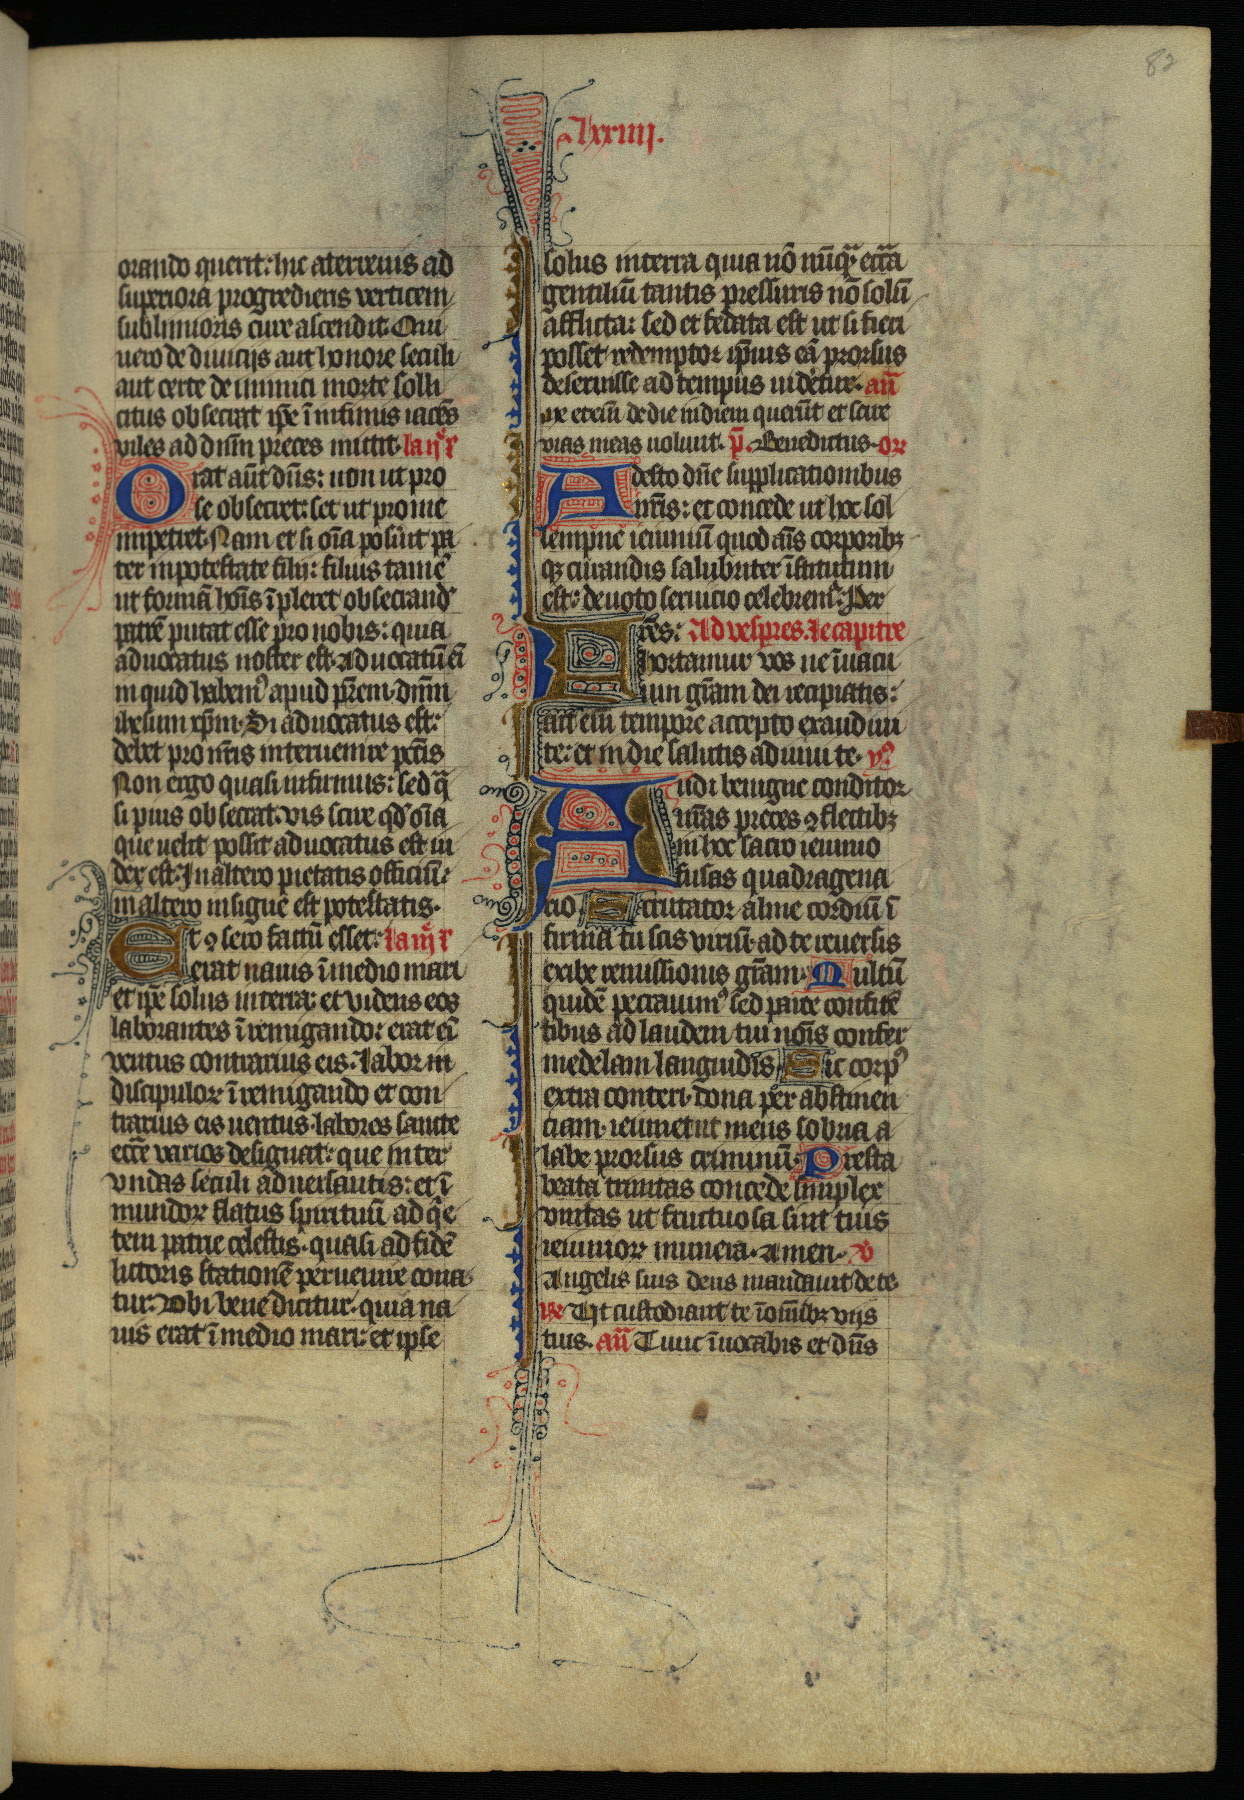 82
lxxiiij.
orando querit: hic a terrenis ad
superiora progrediens verticem
sublimioris cure ascendit. Qui
uero de diuicijs aut honore seculi
aut certe de inimici morte solli
citus obsecrat ip̃e ĩ infimis iacẽs
viles ad dñm preces mittit.
Orat aũt dñs: non ut pro
se obsecret: set ut pro me
impetret. Nam et si oĩa posuit pa
ter in potestate filij: filius tamẽ
ut formã hoĩs ĩpleret obsecrand᷒
patrẽ putat esse pro nobis: quia
aduocatus noster est. Aduocatũ eĩ
inquid habem᷒ apud pr̃em. dñm
ihesum xp̃m. Si aduocatus est:
debet pro nr̃is interuenire pctĩs
Non ergo quasi infirmus: sed q̃
si pius obsecrat. vis scire qd̾ oĩa
que uelit possit aduocatus est iu
dex est: In altero pietatis officiũ:
in altero insigne est potestatis.
Et ꝯ sero factũ esset:
erat nauis ĩ medio mari
et ip̃e solus in terra: et videns eos
laborantes ĩ remigando: erat eĩ
ventus contrarius eis. Labor in
discipulor̃ ĩ remigando et con
trarius eis uentus. labores sancte
eccẽ varios designat: que inter
vndas seculi aduersantis: et ĩ
mundor̃ flatus spirituũ ad q̃e
tem patrie celestis. quasi ad fidẽ
littoris stationẽ peruenire cona
tur: Vbi bene dicitur. quia na
uis erat ĩ medio mari: et ipse
solus in terra quia nõ nũq̃ eccĩa
gentiliũ tantis pressuris nõ solũ
afflicta: sed et fedata est ut si fieri
posset redemptor ip̃ius eã prorsus
deseruisse ad tempus uidetur. añ
Me etem̃ de die in diem querũt et scire
vias meas uolunt. p̃. Benedictus. or̃
Adesto dñe supplicationibus
nr̃is: et concede ut hoc sol
lempne ieiuniũ quod aĩs corporibꝫ
qꝫ curandis salubriter ĩstitutum
est: deuoto seruicio celebrem᷒. Per
Fr̃es: Ad vesp̃res. capitle
hortamur vos ne ĩ uacu
um gr̃am dei recipiatis:
ait eni tempore accepto exaudiui
te: et in die salutis adiuui te. y᷒
Audi benigne conditor
nr̃as preces ꝯ fletibꝫ
in hoc sacro ieiunio
fusas quadragena
rio Scrutator alme cordiũ ĩ
firma tu scis viriũ. ad te reuersis
exibe remissionis gr̃am. Multũ
quidẽ peccauim᷒ sed parce confitẽ
tibus ad laudem tui noĩs confer
medelam languidis Sic corp᷒
extra conteri. dona per abstinen
ciam. ieiunet ut mens sobria a
labe prorsus criminũ. Presta
beata trinitas concede simplex
vnitas ut fructuosa sint tuis
ieiunior̃ munera. Amen. ℣
Angelis suis deus mandauit de te
Ut custodiant te ĩ om̃ibꝫ vijs
tuis. añ Tunc ĩuocabis et dñs